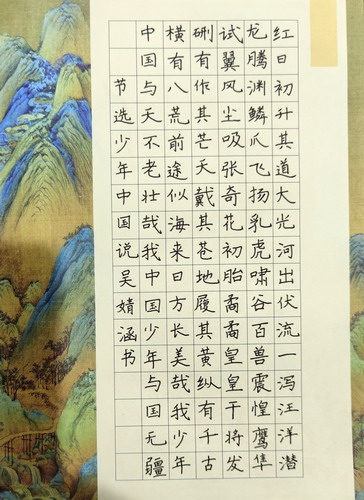 红日初升其道大光河出伏流一泻汪洋潜
龙腾渊鳞爪飞扬乳虎啸谷百兽震惶鹰隼
试翼风尘吸张奇花初胎矞矞皇皇干将发
硎有作其芒天戴其苍地履其黄纵有千古
横有八荒前途似海来日方长美哉我少年
中国与天不老壮哉我中国少年与国无疆
节选少年中国说吴婧涵书